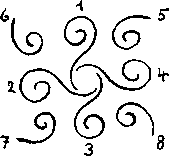 6 1 5
2 4
7 3 8